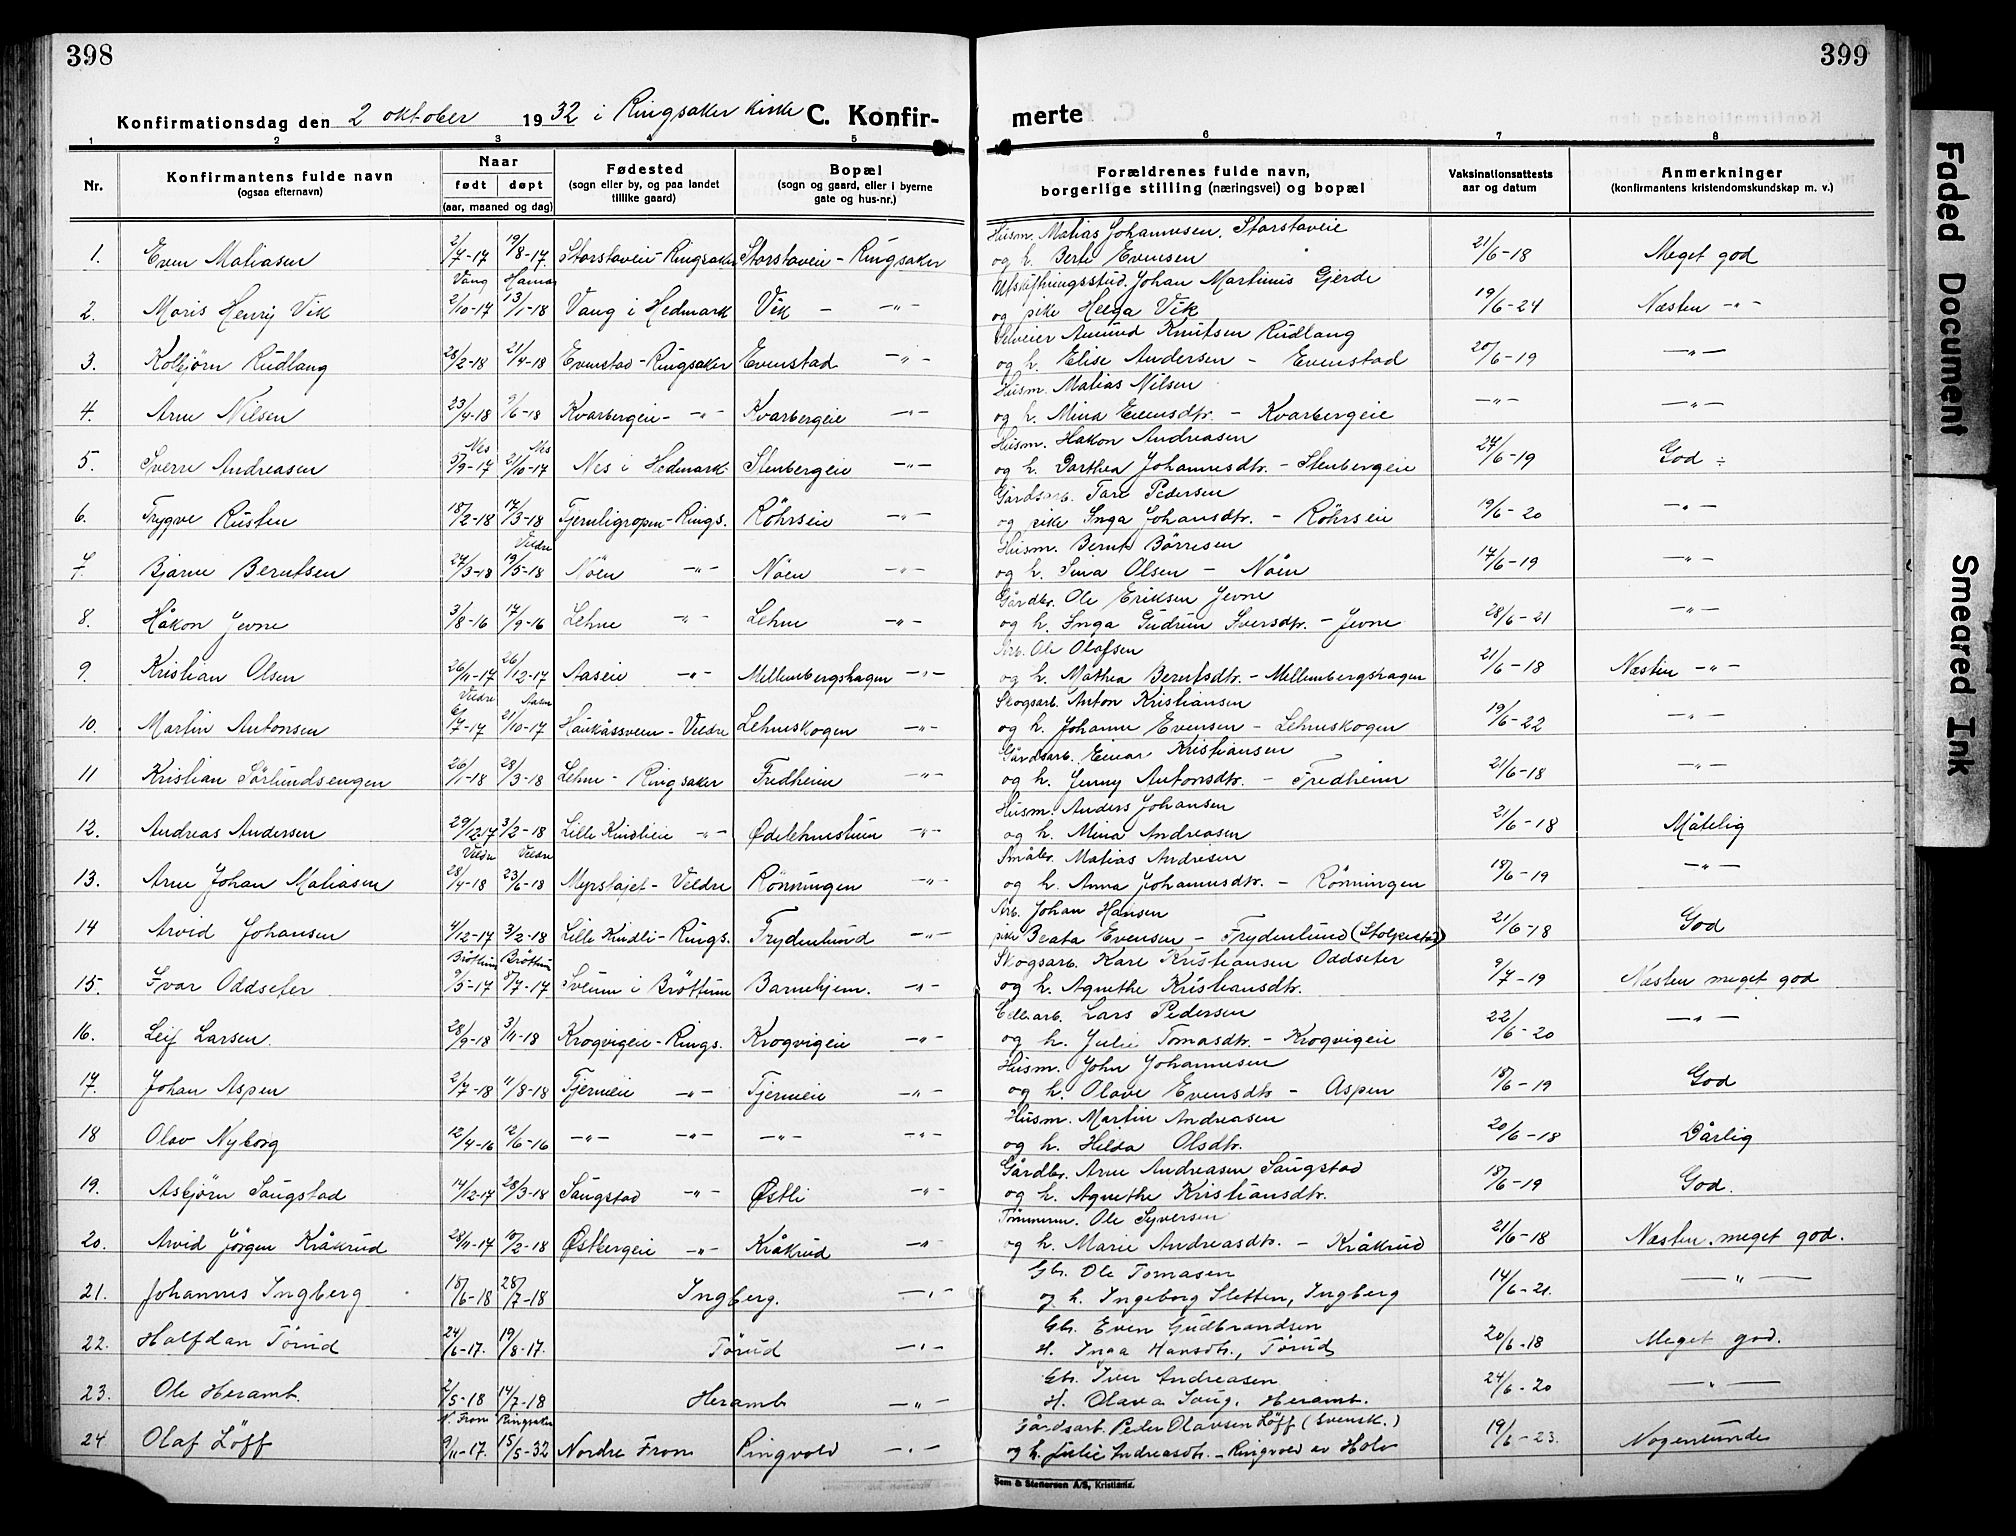 398
399
Konfirmationsdag den 2 oktober 1932 i Ringsaker kirke C. Konfir- merte
1 2 3 4 5 6 7 8
Nr.
Konfirmantens fulde navn
(ogsaa efternavn)
Naar
født døpt
(aar, maaned og dag)
Fødested
(sogn eller by, og paa landet
tillike gaard)
Bopæl
(sogn og gaard, eller i byerne
gate og hus-nr.)
Forældrenes fulde navn,
borgerlige stilling (næringsvei) og bopæl
Vaksinationsattests
aar og datum
Anmerkninger
(konfirmantens kristendomskundskap m. v.)
Husm. Matias Johannesen, Storstaveie
1. Even Matiasen 2/7-17 19/8-17. Storstaveie-Ringsaker Storstaveie - Ringsaker og h. Berte Evensen 21/6-18 Meget god
Vang Hamar Utskiftningsstud. Johan Martinius Gjerde
2. Moris Henry Vik 2/10-17 13/1-18 Vang i Hedmark Vik - -"- og pike Helga Vik 19/6-24 Næsten -"-
Selveier Amund Knutsen Rudlang
3. Kolbjørn Rudlang 28/2-18 21/4-18 Evenstad-Ringsaker Evenstad -"- og h. Elise Andersen - Evenstad 20/6-19 -"-
Husm. Matias Nilsen
4. Arne Nilsen 23/4-18 9/6-18 Kvarbergeie- -"- Kvarbergeie -"- og h. Mina Evensdtr. - Kvarbergeie -"- -"-
Nes Nes Husm. Hakon Andreasen
5. Sverre Andreasen 5/9-17 21/10-17 Nes i Hedmark Stenbergeie -"- og h. Dorthea Johannesdtr. - Stenbergeie 24/6-19 God ÷
Gårdsarb. Tare Pedersen
6. Trygve Rusten 18/2-18 17/3-18 Tjernligropen-Rings. Röhrseie -"- og pike Inga Johansdtr. - Röhrseie 19/6-20 -"-
Veldre Husm. Bernt Börresen
7. Bjarne Berntsen 27/3-18 19/5-18 Nöen -"- Nöen -"- og h. Sina Olsen - Nöen 17/6-19 -"-
Gårdbr. Ole Eriksen Jevne
8. Håkon Jevne 3/8-16 17/9-16 Lehne -"- Lehne -"- og h. Inga Gudrun Iversdtr. - Jevne 28/6-21 -"-
Arb. Ole Olafsen
9. Kristian Olsen 26/11-17 26/12-17 Aaseie -"- Mellembergshagen -"- og h. Mathea Berntsdtr. - Mellembergshagen 21/6-18 Næsten -"-
Veldre Aasen Skogsarb. Anton Kristiansen
10. Martin Antonsen 6/7-17 21/10-17 Haukåssveen-Veldre Lehneskogen -"- og h. Johanne Evensen - Lehneskogen 19/6-22 -"-
Gårdsarb. Einar Kristiansen
11 Kristian Sörlundsengen 26/1-18 28/3-18 Lehne - Ringsaker Fredheim -"- og h. Jenny Antonsdtr. - Fredheim 21/6-18 -"-
Husm. Anders Johansen
12. Andreas Andersen 29/12-17 3/2-18 Lille Kindlieie -"- Ødelehnestuen -"- og h. Mina Andreasen 21/6-18 Måtelig
Veldre Veldre Småbr. Matias Andresen
13. Arne Johan Matiasen 28/4-18 23/6-18 Myrstajet-Veldre Rönningen -"- og h. Anna Johannesdtr. - Rönningen 18/6-19 -"-
Arb. Johan Hansen
14 Arvid Johansen 4/12-17 3/2-18 Lille Kindli-Rings. Frydenlund -"- pike Beata Evensen - Frydenlund (Stolpestad) 21/6-18 God
Bröttum Bröttum Skogsarb. Karl Kristiansen Oddseter
15. Ivar Oddseter 9/5-17 8/7-17. Sveum i Bröttum Barnehjem. -"- og h. Agnethe Kristiansdtr. 9/7-19 Næsten meget god
Cellearb. Lars Pedersen
16. Leif Larsen. 28/9-18 3/11-18 Krogvigeie-Rings. Krogvigeie -"- og h. Julie Tomasdtr. - Krogvigeie 22/6-20 -"-
Husm. John Johannesen
17. Johan Aspen 2/7-18 11/8-18 Tjerneie -"- Tjerneie -"- og h. Olave Evensdtr - Aspen 18/6-19 God
Husm. Martin Andreasen
18 Olav Nyborg 12/4-16 12/6-16 -"- -"- -"- -"- og h. Hilda Olsdtr. 20/6-18 Dårlig
Gårdbr. Arne Andreasen Saugstad
19. Asbjörn Saugstad 14/12-17 28/3-18 Saugstad -"- Østli -"- og h. Agnethe Kristiansdtr. 18/6-19 God.
Tömmerm. Ole Syversen
20. Arvid Jörgen Kråkrud 28/11-17 10/2-18 Østbergeie -"- Kråkrud -"- og h. Marie Andreasdtr. - Kråkrud 21/6-18 Næsten meget god.
Gbr. Ole Tomasen
21. Johannes Ingberg 18/6-18 28/7-18 Ingberg. -"- og h. Ingeborg Sletten, Ingberg 14/6-21. -"-
Gbr. Even Gudbrandsen
22. Halfdan Törud 24/6-17. 19/8-17. Törud -"- H. Inga Hansdtr., Törud 20/6-18 Meget god.
Gbr. Iver Andreasen
23. Ole Heramb. 2/5-18 14/7-18 Heramb -"- H. Olava Soug, Heramb. 24/6-20 -"-
N. Fron Ringsaker Gårdsarb. Peder Olavsen Löff (svensk.)
24 Olaf Löff 9/11-17. 15/5-32 Nordre Fron Ringvold -"- og h. Julie Andreasdtr. - Ringvold av Holo 19/6-23. Nogenlunde
Sem & Stenersen A/S, Kristiania.
Faded Document
Smeared Ink